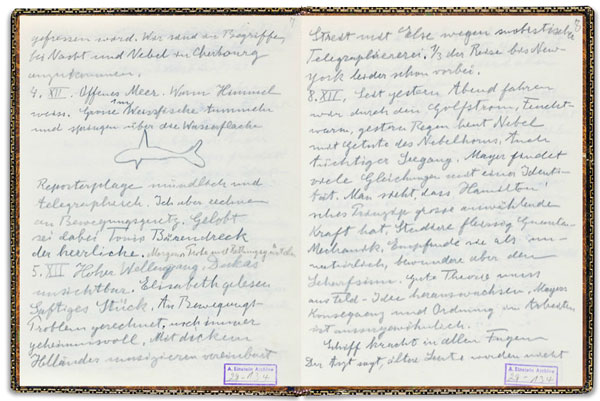 gefressen ward. Wir sind im Begriffe,
bei Nacht und Nebel in Cherbourg
anzukommen.
4. XII. Offenes Meer. Warm Himmel
weiss. Grosse Weissfische tummeln
und springen über die Wasserfläche
Reporterplage mündlich und
telegraphisch. Ich aber rechnen
an Bewegungsgesetz. Gelobt
sei dabei Toni's Bärendreck
der herrliche. Morgen
5. XII Hoher Wellengang. Dukas
unsichtbar. Elisabeth gelesen
Saftiges Stück. An Bewegungs-
Problem gerechnet, noch immer
geheimnisvoll. Mit dickem
Holländer musizieren vereinbart
8
Streit mit Else wegen
Telegraphiererei. 1/3 der Reise bis New-
york leider schon vorbei.
8. XII. Seit gestern Abend fahren
wir durch den Golfstrom, Feucht-
warm, gestern Regen heut Nebel
mit Getute des Nebelhorns, Auch
tüchtiger Seegang. Mayer findet
viele Gleichungen mit einer Identi-
tät. Man sieht, dass Hamilton'
sches Prinzip grosse auswählende
Kraft hat. Studiere fleissig Quanten-
Mechanik. Empfinde sie als un-
natürlich, bewundere aber den
Scharfsinn. Gute Theorie muss
aus Feld-Idee herauswachsen. Mayers
Konsequenz und Ordnung im Arbeiten
ist aussergewöhnlich.
Schiff kracht in allen Fugen
Der Arzt sagt, ältere Leute würden nicht
A. Einstein Archive
29-134
A. Einstein Archive
29-134